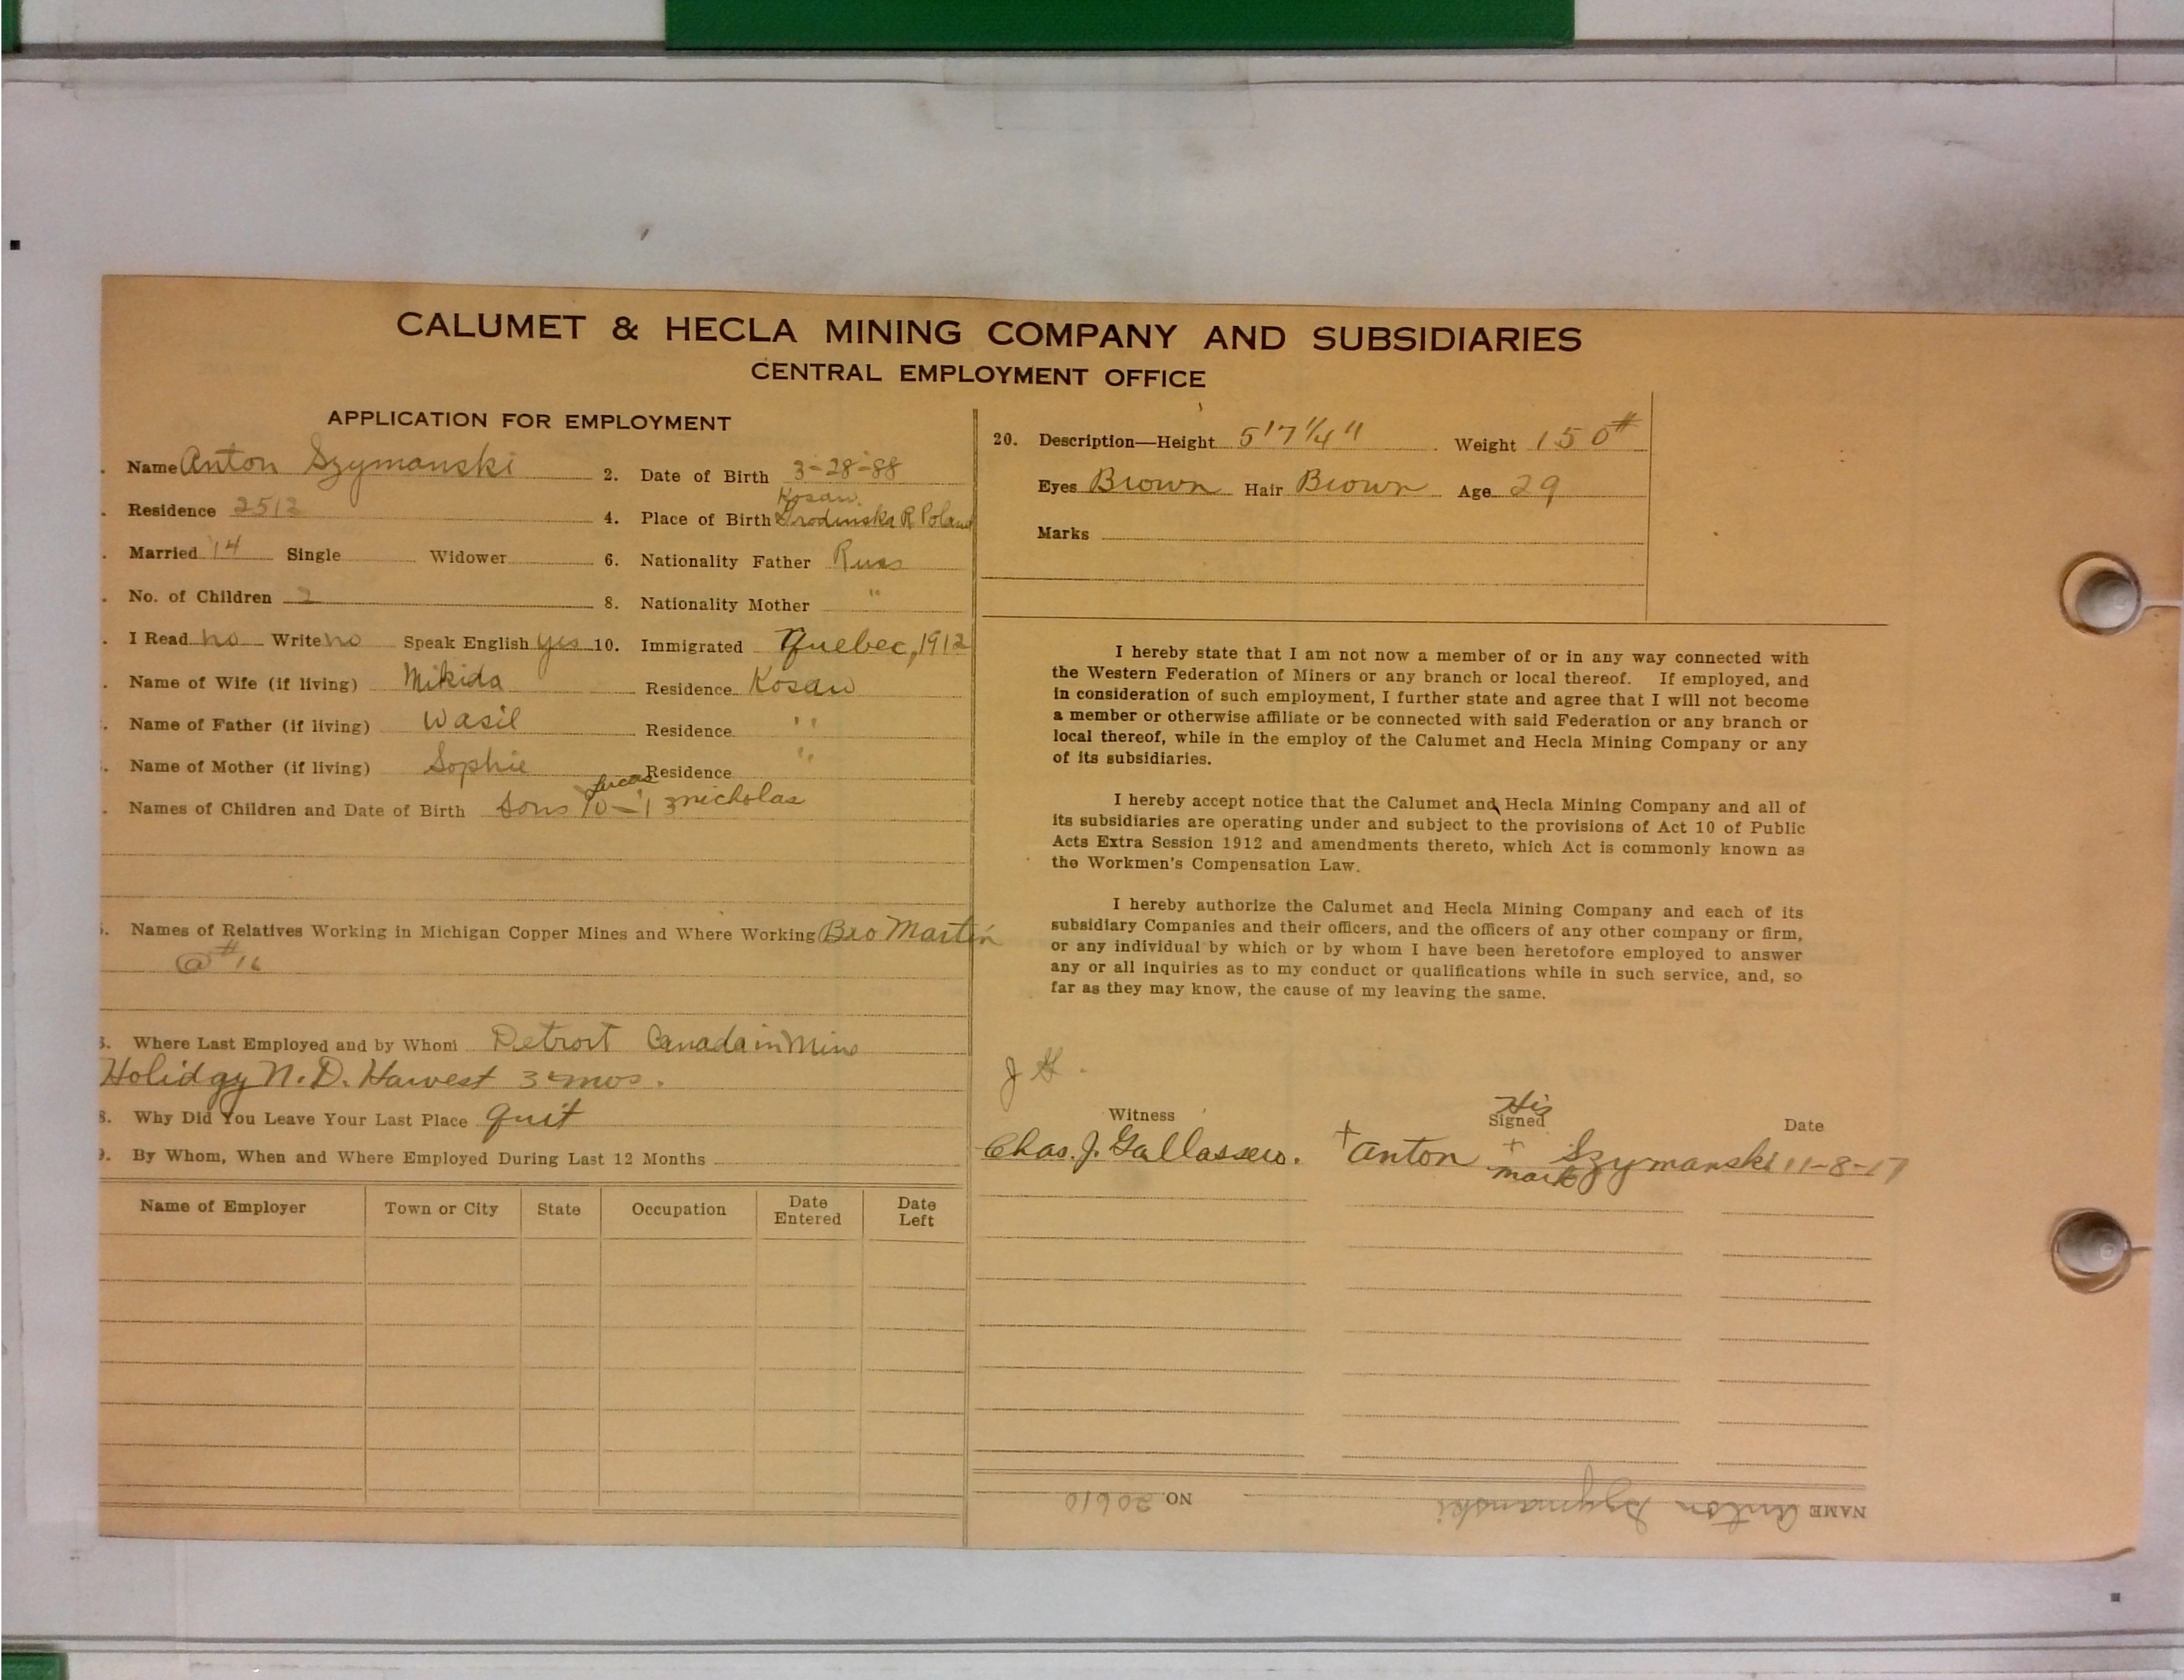 CALUMET & HECLA MINING COMPANY AND SUBSIDIARIES
CENTRAL EMPLOYMENT OFFICE
APPLICATION FOR EMPLOYMENT
. Name Anton Szymanski 2. Date of Birth 3-28-88
. Residence 2512 4. Place of Birth Kosaw Grodinska R Poland
. Married '14 Single Widower 6. Nationality Father Russ
. No. of Children 2 8. Nationality Mother "
. I Read no Write no Speak English yes 10. Immigrated Quebec, 1912
. Name of Wife (if living) Mikida Residence Kosaw
. Name of Father (if living) Wasil Residence "
. Name of Mother (if living) Sophie Residence "
. Names of Children and Date of Birth Sons 10-13 Lucas nicholas
. Names of Relatives Working in Michigan Copper Mines and Where Working Bro Martin
@ #16
. Where Last Employed and by Whom Detroit Canadain Mine
Holidgy N.D. Harvest 3 mos.
8. Why Did You Leave Your Last Place quit
9. By Whom, When and Where Employed During Last 12 Months
Name of Employer Town or City State Occupation Date Entered Date Left
20. Description—Height 5'7¼" Weight 150#
Eyes Brown Hair Brown Age 29
Marks
I hereby state that I am not now a member of or in any way connected with
the Western Federation of Miners or any branch or local thereof. If employed, and
in consideration of such employment, I further state and agree that I will not become
a member or otherwise affiliate or be connected with said Federation or any branch or
local thereof, while in the employ of the Calumet and Hecla Mining Company or any
of its subsidiaries.
I hereby accept notice that the Calumet and Hecla Mining Company and all of
its subsidiaries are operating under and subject to the provisions of Act 10 of Public
Acts Extra Session 1912 and amendments thereto, which Act is commonly known as
the Workmen's Compensation Law.
I hereby authorize the Calumet and Hecla Mining Company and each of its
subsidiary Companies and their officers, and the officers of any other company or firm,
or any individual by which or by whom I have been heretofore employed to answer
any or all inquiries as to my conduct or qualifications while in such service, and, so
far as they may know, the cause of my leaving the same.
J H.
Witness Signed Date
His
Chas. J. Gallassero. + Anton + Szymanski 11-8-17
mark
NAME Anton Szymanski NO. 20610